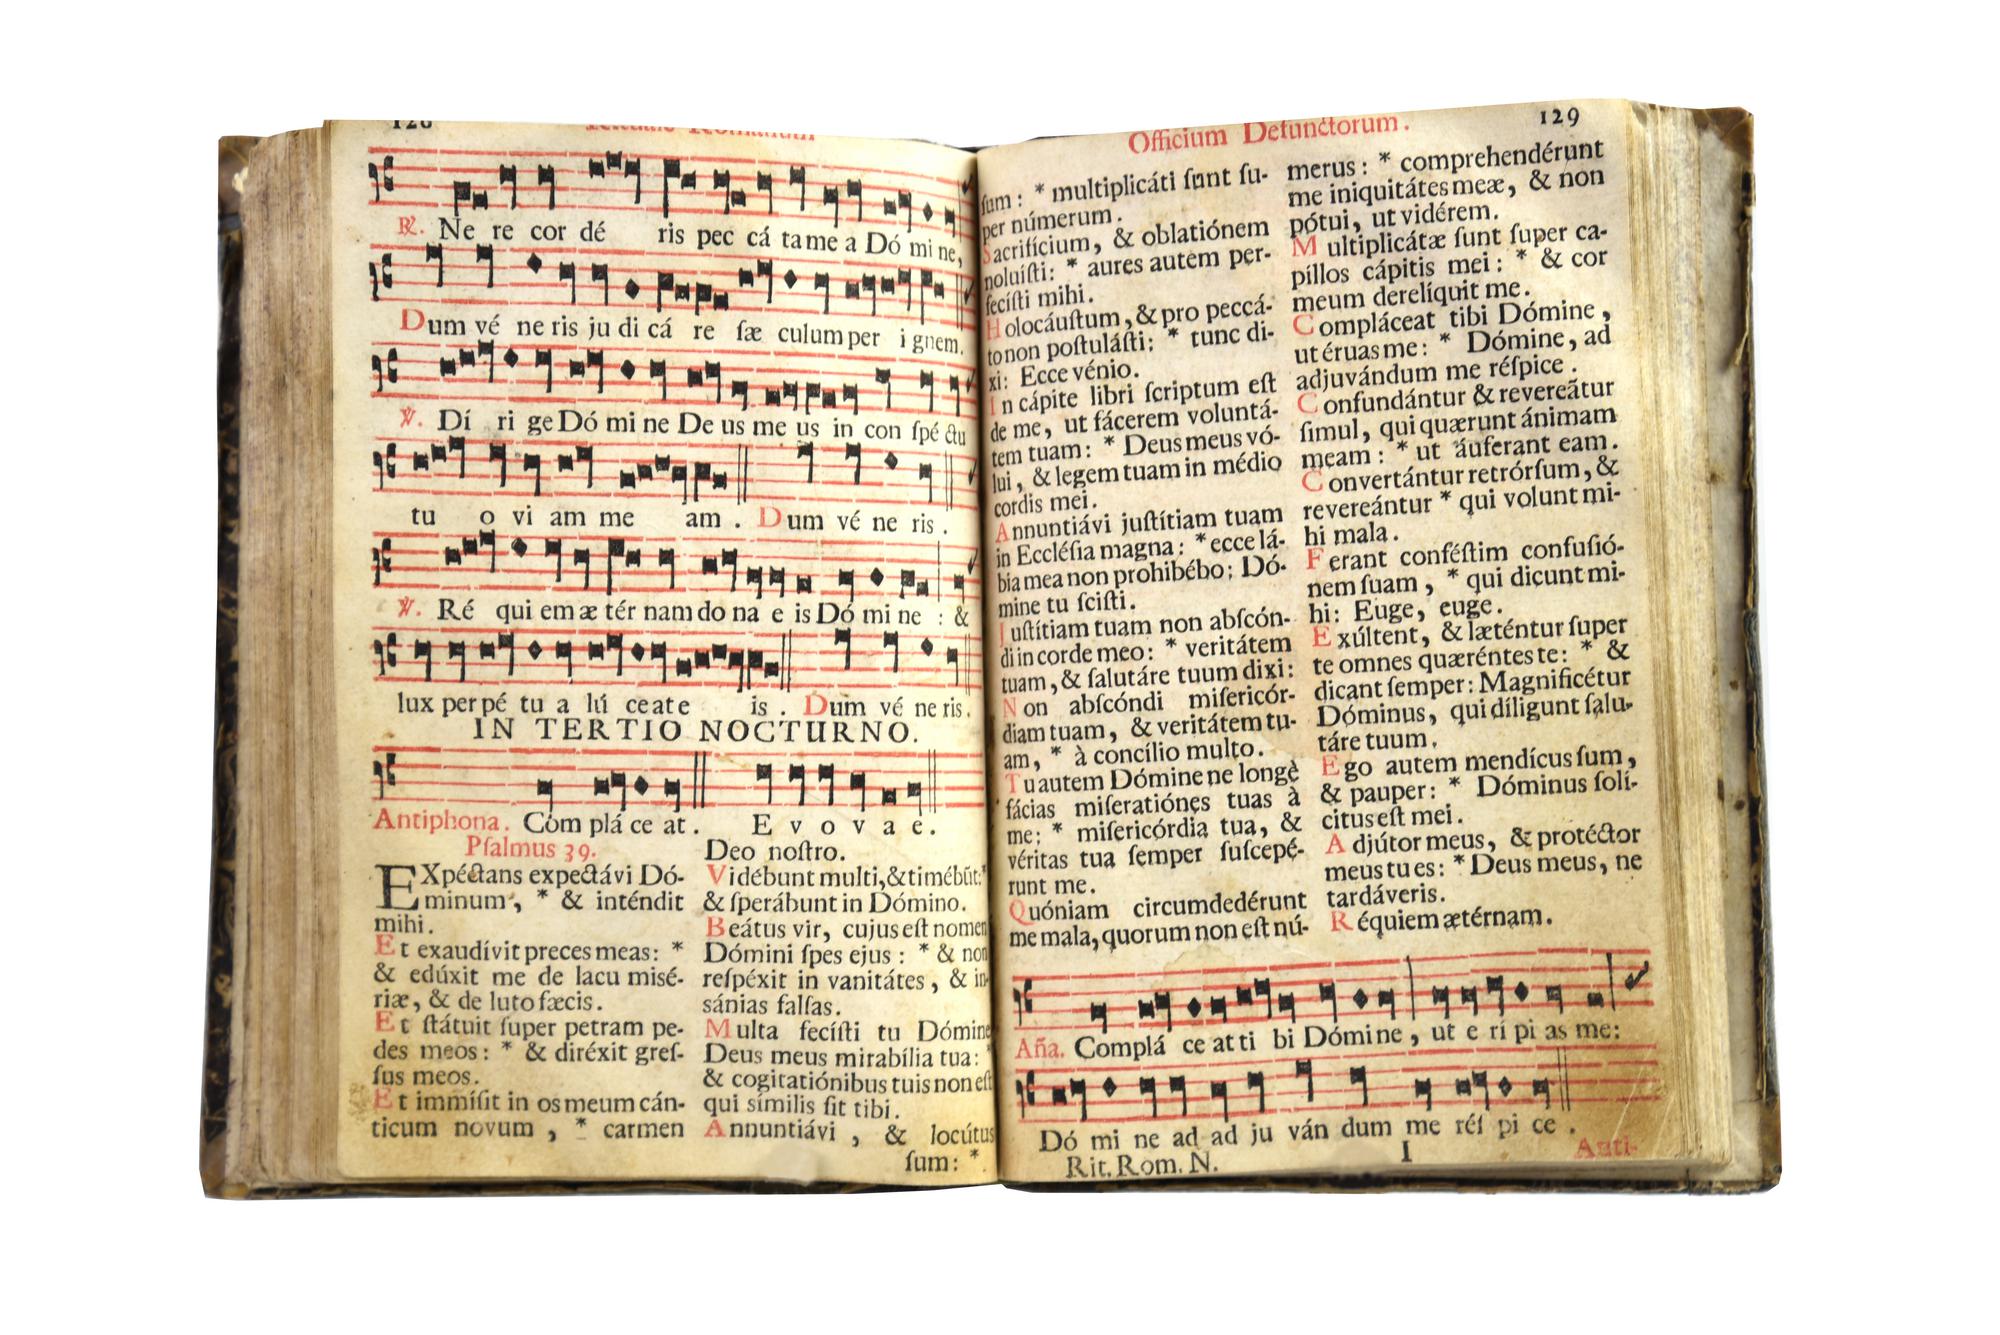 128 Rituale Romanum
℟. Ne re cor dé ris pec cá ta me a Dó mi ne,
Dum vé ne ris ju di cá re ſæ culum per i gnem.
℣. Dí ri ge Dó mi ne De us me us in con ſpé ctu
tu o vi am me am . Dum vé ne ris .
℣. Ré qui em æ tér nam do na e is Dó mi ne : &
lux per pé tu a lú ce at e is . Dum vé ne ris.
IN TERTIO NOCTURNO.
Antiphona. Com plá ce at . E v o v a e .
Pſalmus 39.
EXpéctans expectávi Dó-
minum, * & inténdit
mihi.
Et exaudívit preces meas: *
& edúxit me de lacu misé-
riæ, & de luto fæcis.
Et ſtátuit ſuper petram pe-
des meos: * & diréxit greſ-
ſus meos.
Et immíſit in os meum cán-
ticum novum , * carmen
Deo noſtro.
Vidébunt multi,& timébũt:*
& ſperábunt in Dómino.
Beátus vir, cujus eſt nomen
Dómini ſpes ejus : * & non
reſpéxit in vanitátes , & in-
sánias falſas.
Multa feciſti tu Dómine
Deus meus mirabília tua: *
& cogitatiónibus tuis non eſt
qui símilis ſit tibi.
Annuntiávi , & locútus
ſum: *
Officium Defunctorum. 129
ſum: * multiplicáti ſunt ſu-
per númerum.
Sacrifícium, & oblatiónem
noluíſti: * aures autem per-
fecíſti mihi.
Holocáuſtum, & pro peccá-
to non poſtuláſti: * tunc di-
xi: Ecce vénio.
In cápite libri ſcriptum eſt
de me, ut fácerem voluntá-
tem tuam: * Deus meus vó-
lui, & legem tuam in médio
cordis mei.
Annuntiávi juſtítiam tuam
in Eccléſia magna: * ecce lá-
bia mea non prohibébo: Dó-
mine tu ſciſti.
Juſtítiam tuam non abſcón-
di in corde meo: * veritátem
tuam, & ſalutáre tuum dixi:
Non abſcóndi miſericór-
diam tuam, & veritátem tu-
am, * à concílio multo.
Tu autem Dómine ne longè
fácias miſeratiónes tuas à
me: * miſericórdia tua, &
véritas tua ſemper ſuſcepé-
runt me.
Quóniam circumdedérunt
me mala, quorum non eſt nú-
merus: * comprehendérunt
me iniquitátes meæ, & non
pótui, ut vidérem.
Multiplicátæ ſunt ſuper ca-
píllos cápitis mei: * & cor
meum derelíquit me.
Compláceat tibi Dómine,
ut éruas me: * Dómine, ad
adjuvándum me réſpice.
Confundántur & revereãtur
ſimul, qui quærunt ánimam
meam: * ut áuferant eam.
Convertántur retrórſum, &
revereántur * qui volunt mi-
hi mala.
Ferant conféſtim confuſió-
nem ſuam, * qui dicunt mi-
hi: Euge, euge.
Exúltent, & læténtur ſuper
te omnes quæréntes te: * &
dicant ſemper: Magnificétur
Dóminus, qui díligunt ſalu-
táre tuum.
Ego autem mendícus ſum,
& pauper: * Dóminus ſolí-
citus eſt mei.
Adjútor meus, & protéctor
meus tu es: * Deus meus, ne
tardáveris.
Réquiem ætérnam.
Aña. Complá ce at ti bi Dómine , ut e rí pi as me:
Dó mi ne ad ad ju ván dum me réſ pi ce .
Rit. Rom. N. I Anti-